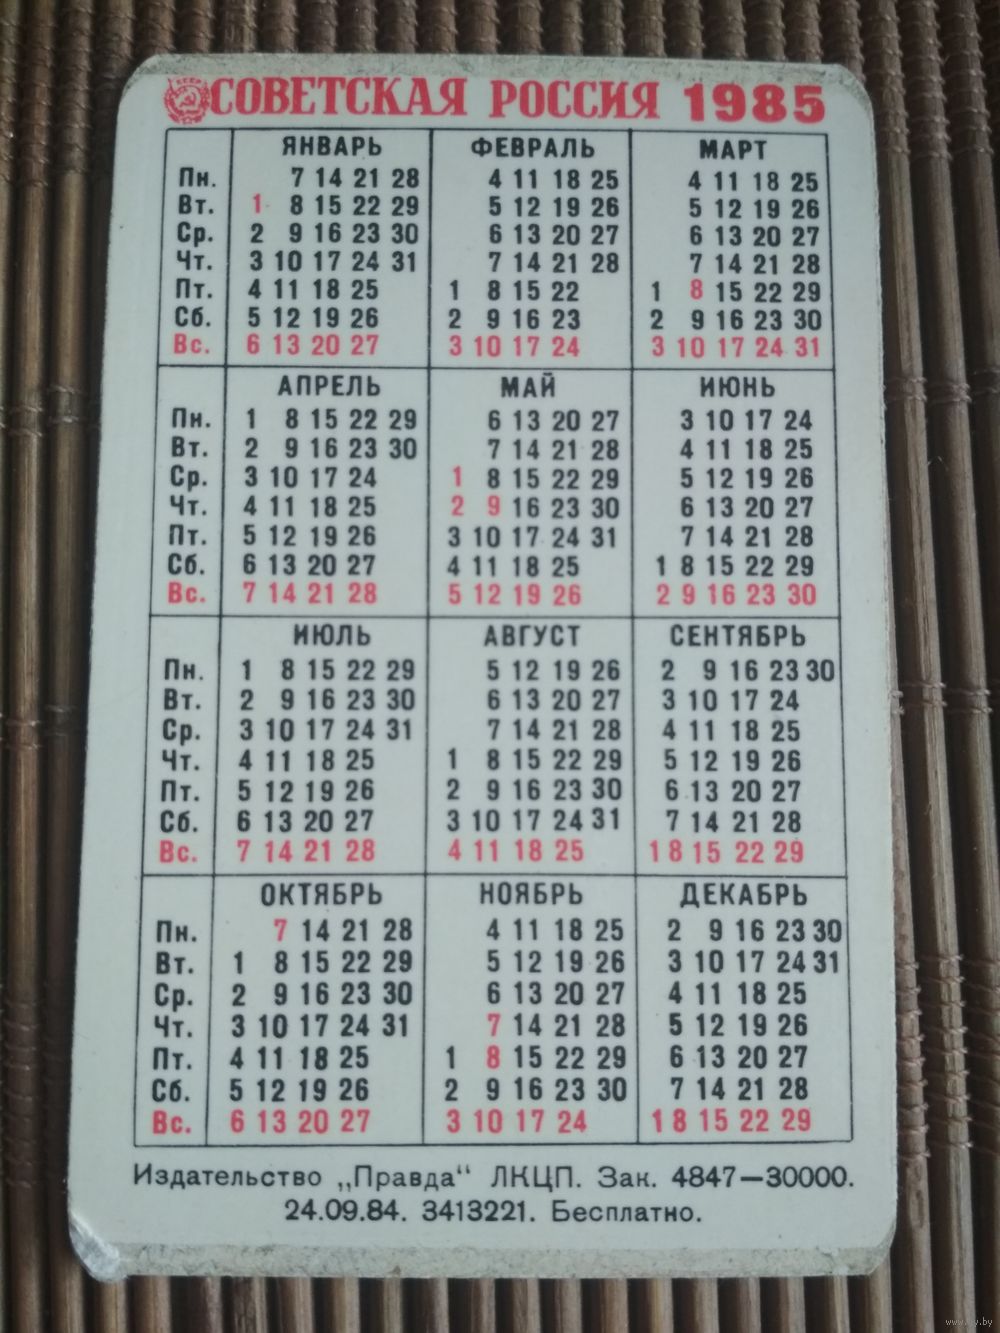 СОВЕТСКАЯ РОССИЯ 1985
ЯНВАРЬ ФЕВРАЛЬ МАРТ
Пн. 7 14 21 28 4 11 18 25 4 11 18 25
Вт. 1 8 15 22 29 5 12 19 26 5 12 19 26
Ср. 2 9 16 23 30 6 13 20 27 6 13 20 27
Чт. 3 10 17 24 31 7 14 21 28 7 14 21 28
Пт. 4 11 18 25 1 8 15 22 1 8 15 22 29
Сб. 5 12 19 26 2 9 16 23 2 9 16 23 30
Вс. 6 13 20 27 3 10 17 24 3 10 17 24 31
АПРЕЛЬ МАЙ ИЮНЬ
Пн. 1 8 15 22 29 6 13 20 27 3 10 17 24
Вт. 2 9 16 23 30 7 14 21 28 4 11 18 25
Ср. 3 10 17 24 1 8 15 22 29 5 12 19 26
Чт. 4 11 18 25 2 9 16 23 30 6 13 20 27
Пт. 5 12 19 26 3 10 17 24 31 7 14 21 28
Сб. 6 13 20 27 4 11 18 25 1 8 15 22 29
Вс. 7 14 21 28 5 12 19 26 2 9 16 23 30
ИЮЛЬ АВГУСТ СЕНТЯБРЬ
Пн. 1 8 15 22 29 5 12 19 26 2 9 16 23 30
Вт. 2 9 16 23 30 6 13 20 27 3 10 17 24
Ср. 3 10 17 24 31 7 14 21 28 4 11 18 25
Чт. 4 11 18 25 1 8 15 22 29 5 12 19 26
Пт. 5 12 19 26 2 9 16 23 30 6 13 20 27
Сб. 6 13 20 27 3 10 17 24 31 7 14 21 28
Вс. 7 14 21 28 4 11 18 25 1 8 15 22 29
ОКТЯБРЬ НОЯБРЬ ДЕКАБРЬ
Пн. 7 14 21 28 4 11 18 25 2 9 16 23 30
Вт. 1 8 15 22 29 5 12 19 26 3 10 17 24 31
Ср. 2 9 16 23 30 6 13 20 27 4 11 18 25
Чт. 3 10 17 24 31 7 14 21 28 5 12 19 26
Пт. 4 11 18 25 1 8 15 22 29 6 13 20 27
Сб. 5 12 19 26 2 9 16 23 30 7 14 21 28
Вс. 6 13 20 27 3 10 17 24 1 8 15 22 29
Издательство „Правда“ ЛКЦП. Зак. 4847—30000.
24.09.84. 3413221. Бесплатно.